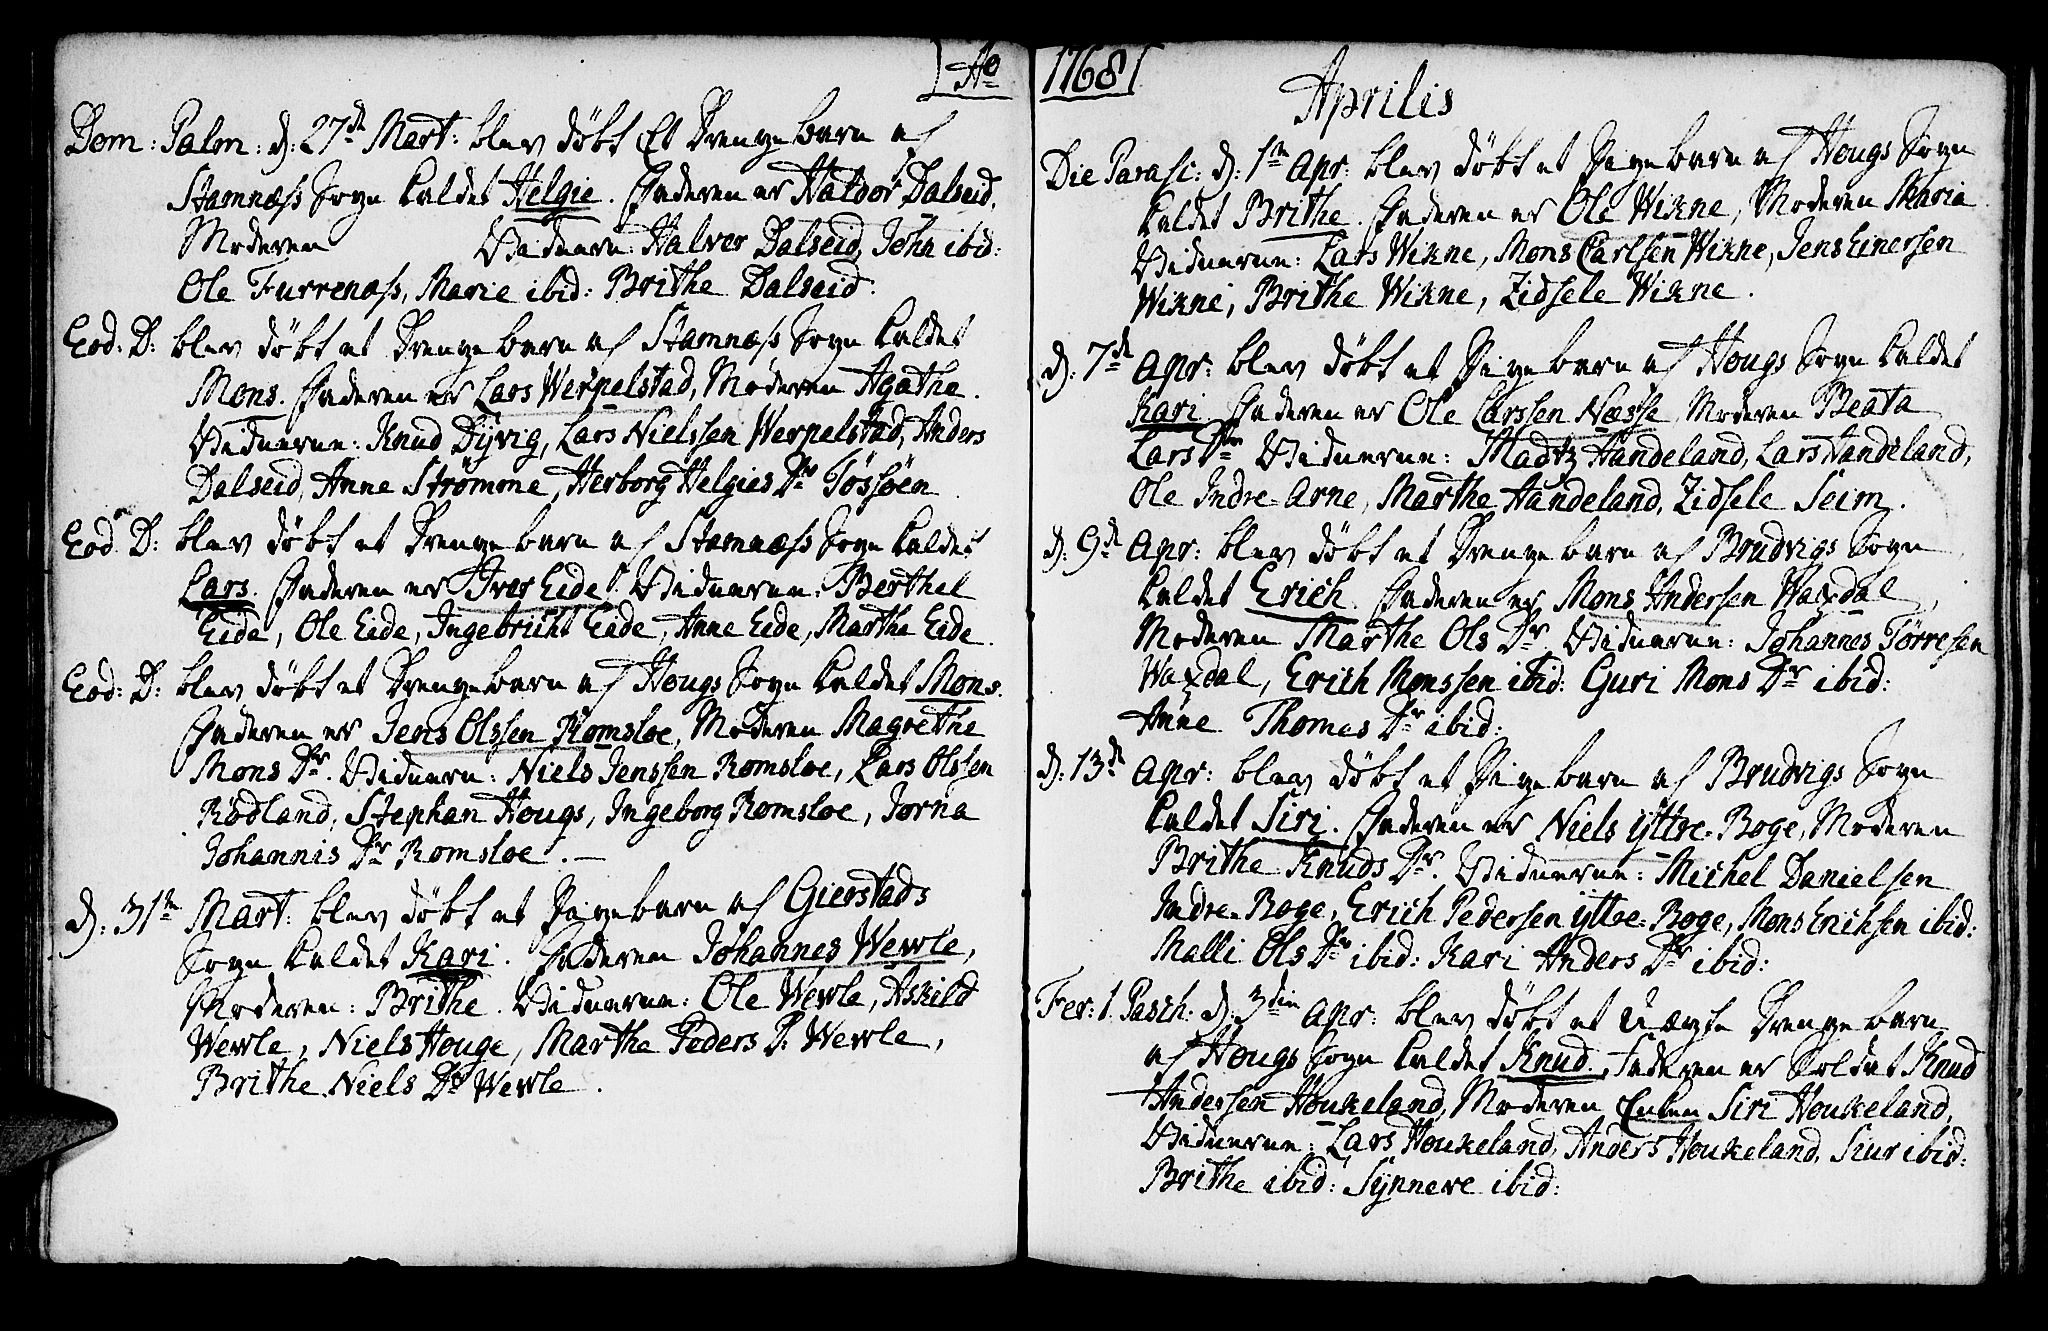 Ao
Dom: Palm: d: 27de Mart: blev døbt Et Drengebarn af
Stamnæss Sogn kaldet Helgie. Faderen er Haldor Dalseid,
Moderen Vidnern: Halver Dalseid, John ibid:
Ole Furrenæss, Marie ibid: Brithe Dalseid.
Eod: D: blev døbt et Drengebarn af Stamnæss Sogn kaldet
Mons. Faderen er Lars Werpelstad, Moderen Agathe.
Vidnerne: Knud Dÿvig, Lars Nielssen Werpelstad, Anders
Dalseid, Anne Strømme, Herborg Helgies Dr Tøssøen
Eod D: blev døbt et Drengebarn af Stamnæss Sogn kaldet
Lars. Faderen er Iver Eide. Vidneren: Berthel
Eide, Ole Eide, Ingebricht Eide, Anne Eide, Marthe Eide.
Eod: D: blev døbt et Drengebarn af Hougs Sogn kaldet Mons.
Faderen er Jens Olssen Romsloe, Moderen Magrethe
Mons Dr. Vidnern: Niels Jenssen Romsloe, Lars Olssen
Rødland, Stephan Hougs, Ingeborg Romsloe, Jorna
Johannis Dr Romsloe.
d: 31te Mart: blev døbt et Pigebarn af Gierstads
Sogn kaldet Kari. Faderen Johannes Wewle,
Moderen: Brithe. Vidnerne: Ole Wewle, Askild
Wewle, Niels Houge, Marthe Peders D. Wewle,
Brithe Niels Dr Wewle.
1768
Aprilis
Die Parasc: d: 1te Apr: blev døbt et Pigebarn af Hougs Sogn
kaldet Brithe. Faderen er Ole Wikne, Moderen Maria
Vidnerne: Lars Wikne, Mons Carlsen Wikne, Jens Einersen
Wikne, Brithe Wikne, Zidsele Wikne.
d: 7de Apr: blev døbt et Pigebarn af Hougs Sogn kaldet
Kari. Faderen er Ole Larssen Næsse, Moderen Beata
Lars Dr Vidnerne: Madtz Handeland, Lars Handeland,
Ole Indre-Arne, Marthe Handeland, Zidsele Seim.
d: 9de Apr: blev døbt et Drengebarn af Brudvigs Sogn
kaldet Erich. Faderen er Mons Andersen Waxdal,
Moderen Marthe Ols Dr Vidnerne: Johannes Tørresen
Waxdal, Erich Monssen ibid: Guri Mons Dr ibid:
Anne Thomes Dr ibid:
d: 13de Apr: blev døbt et Pigebarn af Brudvigs Sogn
kaldet Siri. Faderen er Niels ÿttre-Boge, Moderen
Brithe Knuds Dr. Vidnerne: Michel Danielsen
Indre-Boge, Erich Pedersen ÿttre-Boge, Mons Erichsen ibid:
Malli Ols Dr ibid: Kari Anders Dr ibid:
Fer: 1. Pasch. d: 3die Apr: blev døbt et uægte Drengebarn
af Hougs Sogn kaldet Knud. Faderen er Soldat Knud
Anderssen Houkeland, Moderen Enken Siri Houkeland,
Vidnerne: Lars Houkeland, Anders Houkeland, Siur ibid:
Brithe ibid: Sÿnneve ibid: